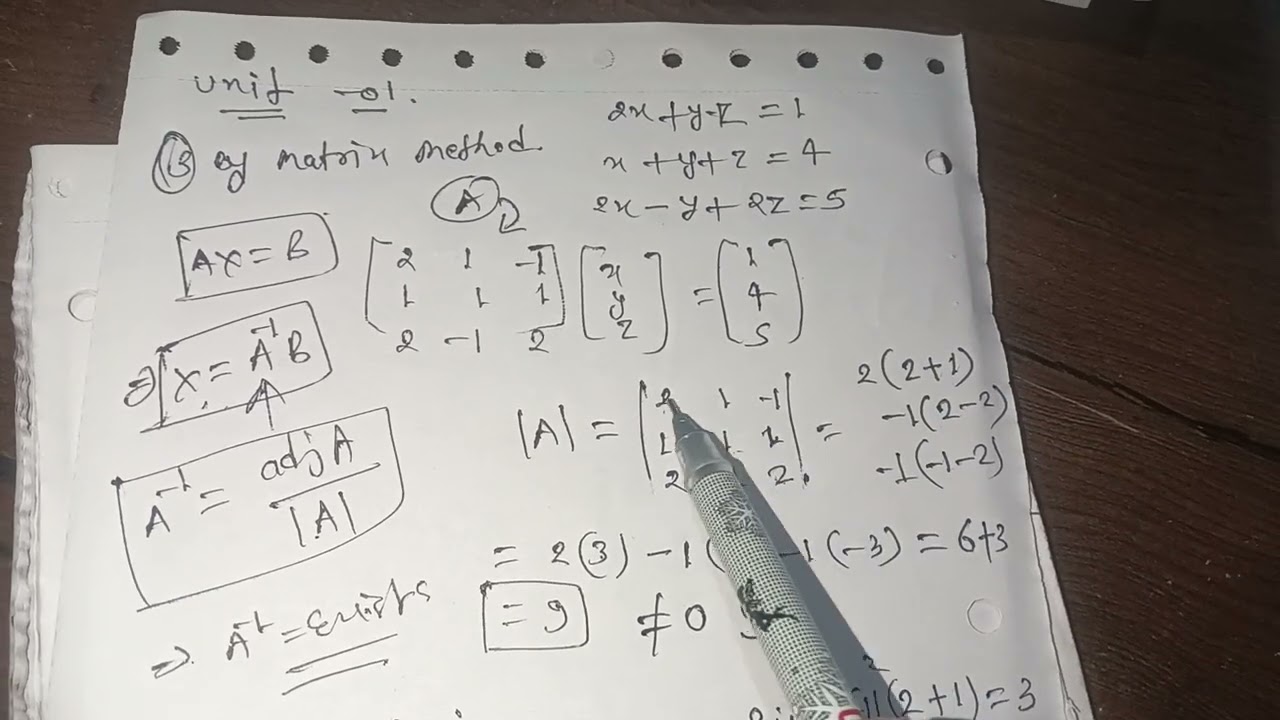 unit -01.
(13) By matrix method.
2x+y-z=1
x+y+z=4
2x-y+2z=5
A
AX=B
[2 1 -1
1 1 1
2 -1 2] [x
y
z] = [1
4
5]
⇒ X=A⁻¹B
A⁻¹ = adj A / |A|
|A| = |2 1 -1
1 1 1
2 2| = 2(2+1)
-1(2-2)
-1(-1-2)
= 2(3) -1( -1(-3) = 6+3
= 9 ≠ 0
⇒ A⁻¹ = exists
(2+1)=3